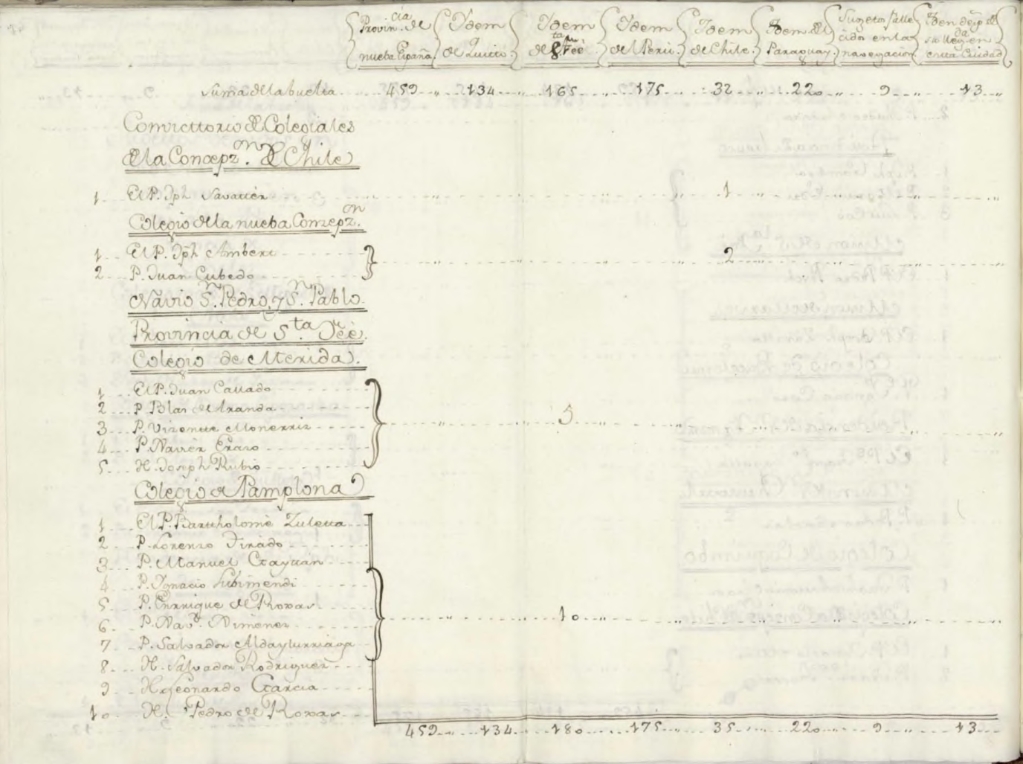 Provin.cia de nueba España
Ydem de Quito
Ydem de S.ta Fee
Ydem de Peru
Ydem de Chile
Ydem del Paraguay
Sugetos falle cido en la navegacion
Yden en esta Ciudad
Suma de la buelta 459 134 165 175 32 220 9 13
Convictorio de Colegiales
de la Concepz.on de Chile
1 El P. Jph Xavarrer 1
Colegio de la nueba Conzepz.on
1 El P. Jph Ambert
2 P. Juan Cubedo 2
Navio S.n Pedro, y S.n Pablo.
Provincia de S.ta Fee.
Colegio de Merida
1 El P. Juan Callado
2 P. Blas de Aranda
3 P. Vizente Monerriz 5
4 P. Navier Eraso
5 H. Joseph Rubio
Colegio de Pamplona
1 El P. Bartholome Zuleta
2 P. Lorenzo Tirado
3 P. Manuel Gaytan
4 P. Ygnacio Lubimendi
5 P. Enrrique de Roxas
6 P. Nav.r Ximenez 10
7 P. Salvador Aldayturriaga
8 H. Salvador Rodriguez
9 H. Leonardo Garcia
10 H. Pedro de Roxas
459 134 180 175 35 220 9 13